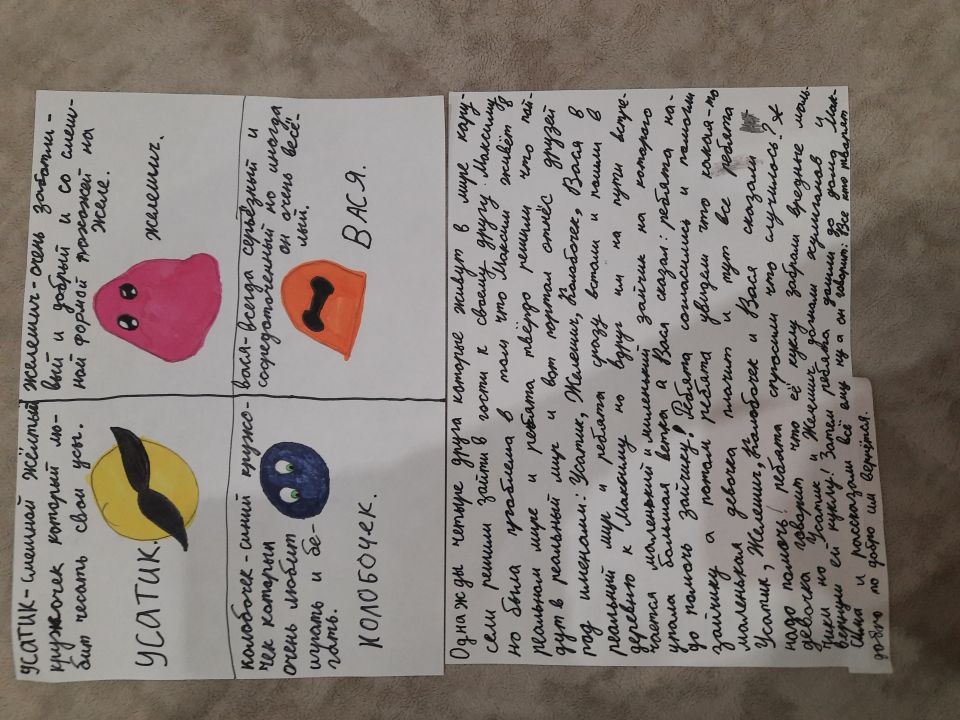 УСАТИК-смешной жёлтый
кружочек который лю-
бит чесать свои усы.
УСАТИК.
желешич-очень заботли-
вый и добрый и со смеш-
ной формой похожей на
желе.
желешич.
Колобочек-синий кружо-
чек который
очень любит
шутать и бе-
гать.
КОЛОБОЧЕК.
вася-всегда серьёзий и
сосредоточенный но иногда
он очень весё-
лый.
ВАСЯ.
Однажды четыре друга которые живут в мире кару-
сели решили зайти в гости к своему другу Максиму
но была проблема в том что Максим живёт в
реальном мире и ребята твёрдо решили что пай-
дут в реальный мир и вот портал отнёс друзей
под именами: Усатик, Желешич, Колобочек, Вася в
реальный мир и ребята сразу встали и пошли в
деревню к Максиму но вдруг им на пути встре-
чается маленький и миленький зайчик на которого
упала большая ветка а Вася сказал: ребята на-
до помочь зайчику! Ребята согласились и помогли
зайчику а потом ребята увидели что какая-то
маленькая девочка плачит и тут все ребята
Усатик, Желешич, Колобочек и Вася сказали
надо помочь! ребята спросили что случилось?
девочка говорит что её куклу забрали вредные маль-
чики но Усатик и Желешич догнали хулиганов и
вернули ей куклу! Затем ребята дошли до дома Мак-
сима и рассказали всё ему ну а он говорит: Все кто творят
добро то добро им вернётся.